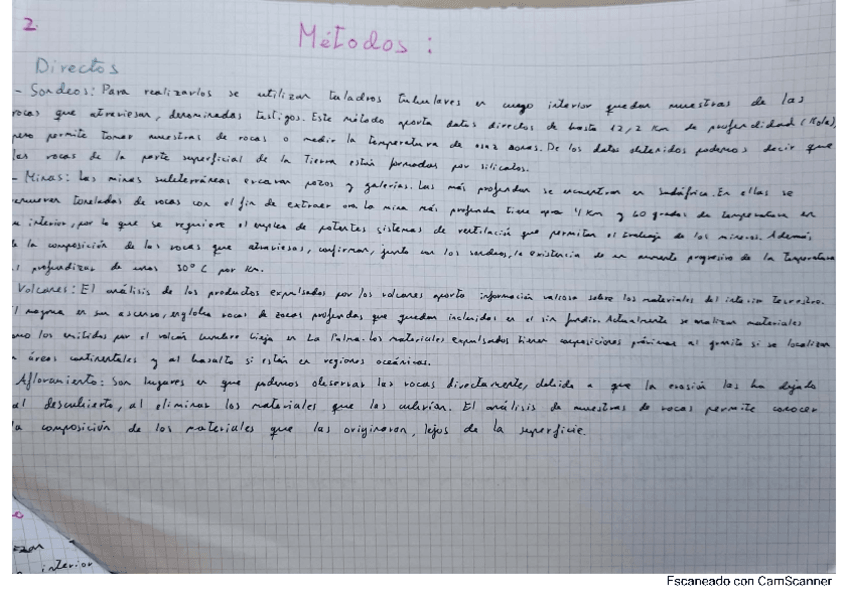 2.
Métodos:
Directos
- Sondeos: Para realizarlos se utilizan taladros tubulares en cuyo interior quedan muestras de las
rocas que atraviesan, denominadas testigos. Este método aporta datos directos de hasta 12,2 Km de profundidad (Kola),
pero permite tomar muestras de rocas o medir la temperatura de esas zonas. De los datos obtenidos podemos decir que
las rocas de la parte superficial de la Tierra están formadas por silicatos.
- Minas: Las minas subterráneas excavan pozos y galerías. Las más profundas se encuentran en Sudáfrica. En ellas se
remueven toneladas de rocas con el fin de extraer oro. la mina más profunda tiene 4 Km y 60 grados de temperatura en
su interior, por lo que se requiere el empleo de potentes sistemas de ventilación que permitan el trabajo de los mineros. Además
la composición de las rocas que atraviesan, confirman, junto con los sondeos, la existencia de un aumento progresivo de la temperatura
profundizar de unos 30°C por Km.
Volcanes: El análisis de los productos expulsados por los volcanes aporta información valiosa sobre los materiales del interior terrestre.
magma en su ascenso, engloba rocas de zonas profundas que quedan incluidos en él sin fundir. Actualmente se analizan materiales
como los emitidos por el volcán Cumbre Vieja en La Palma. Los materiales expulsados tienen composiciones próximas al granito si se localizan
áreas continentales y al basalto si están en regiones oceánicas.
Afloramiento: Son lugares en que podemos observar las rocas directamente, debido a que la erosión las ha dejado
al descubierto, al eliminar los materiales que las cubrían. El análisis de muestras de rocas permite conocer
la composición de los materiales que las originaron, lejos de la superficie.
interior
Escaneado con CamScanner